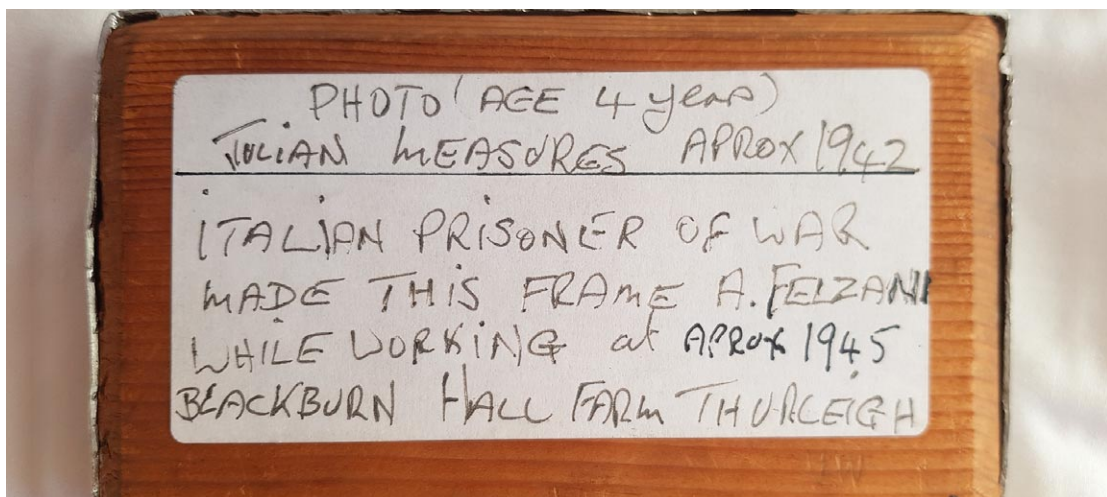 PHOTO (AGE 4 years)
JULIAN MEASURES APROX 1942
ITALIAN PRISONER OF WAR
MADE THIS FRAME A. FELZANI
WHILE WORKING at APROX 1945
BLACKBURN HALL FARM THURLEIGH